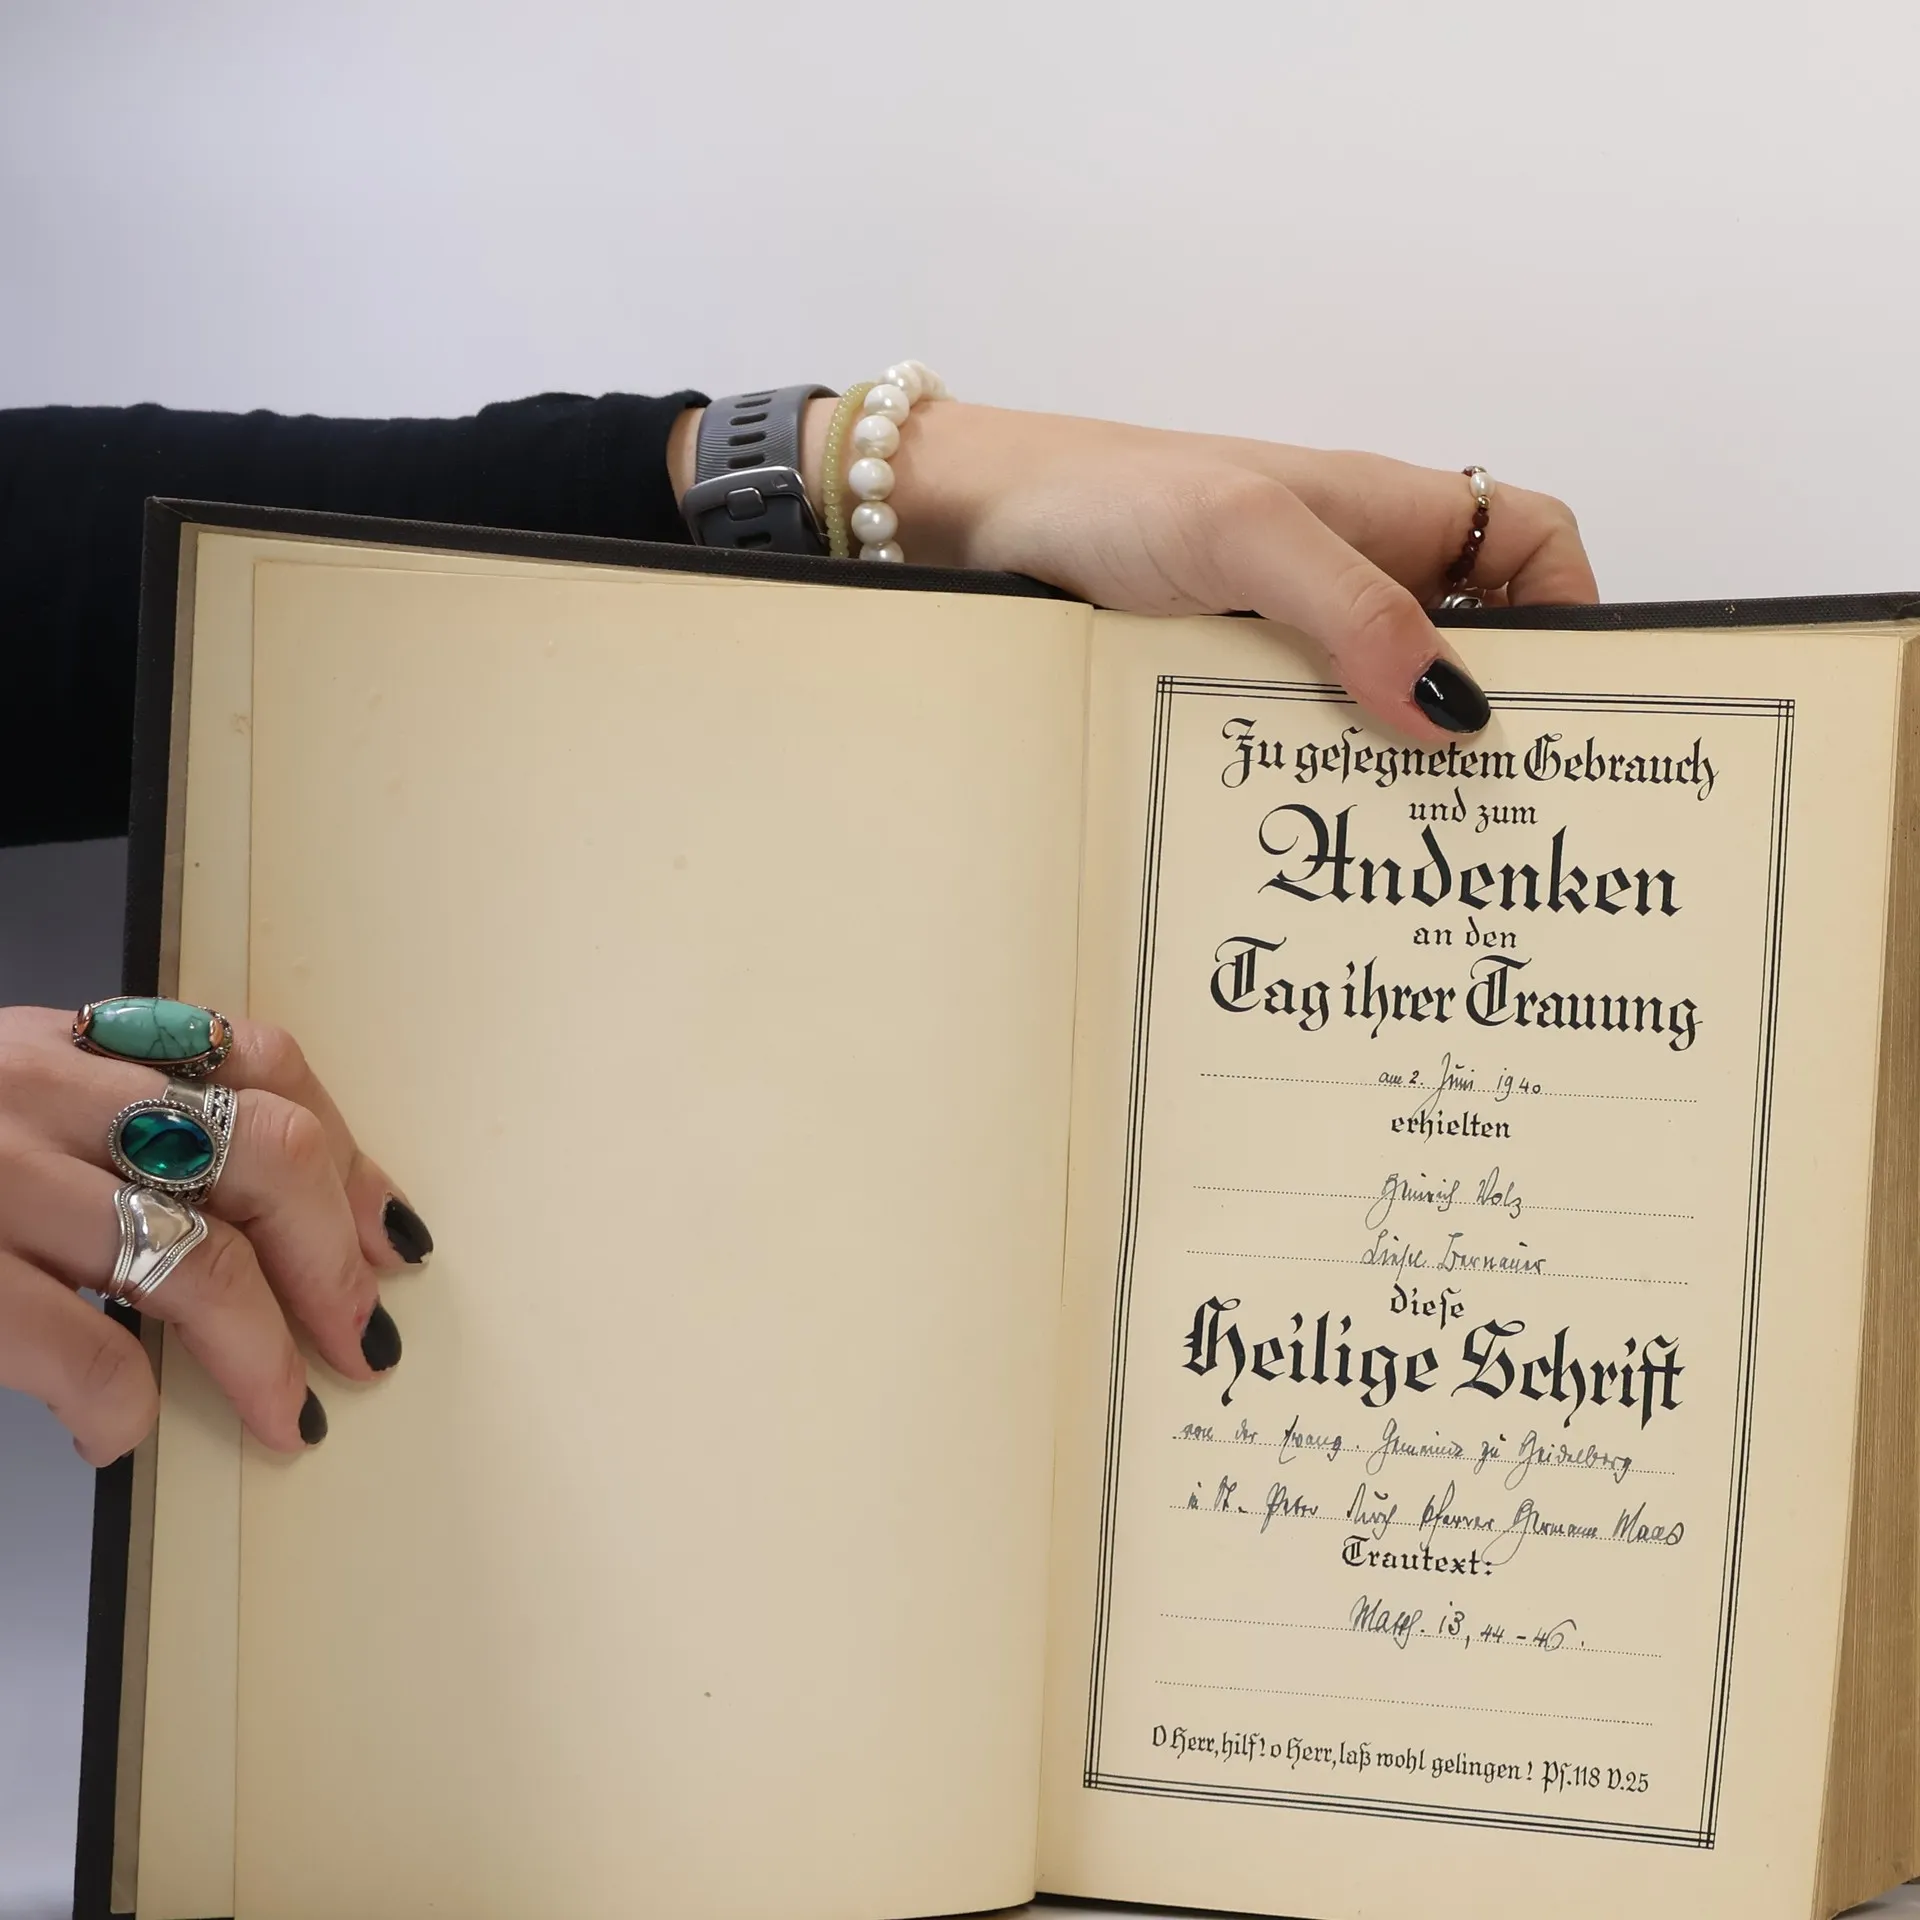 Zu geſegnetem Gebrauch
und zum
Andenken
an den
Tag ihrer Trauung
am 2. Juni 1940
erhielten
Heinrich Volz
Liesel Bernauer
dieſe
Heilige Schrift
von der Evang. Gemeinde zu Heidelberg
in St. Peter durch Pfarrer Hermann Maas
Trautext:
Matth. 13, 44-46.
O Herr, hilf! o Herr, laß wohl gelingen! Pſ.118 V.25